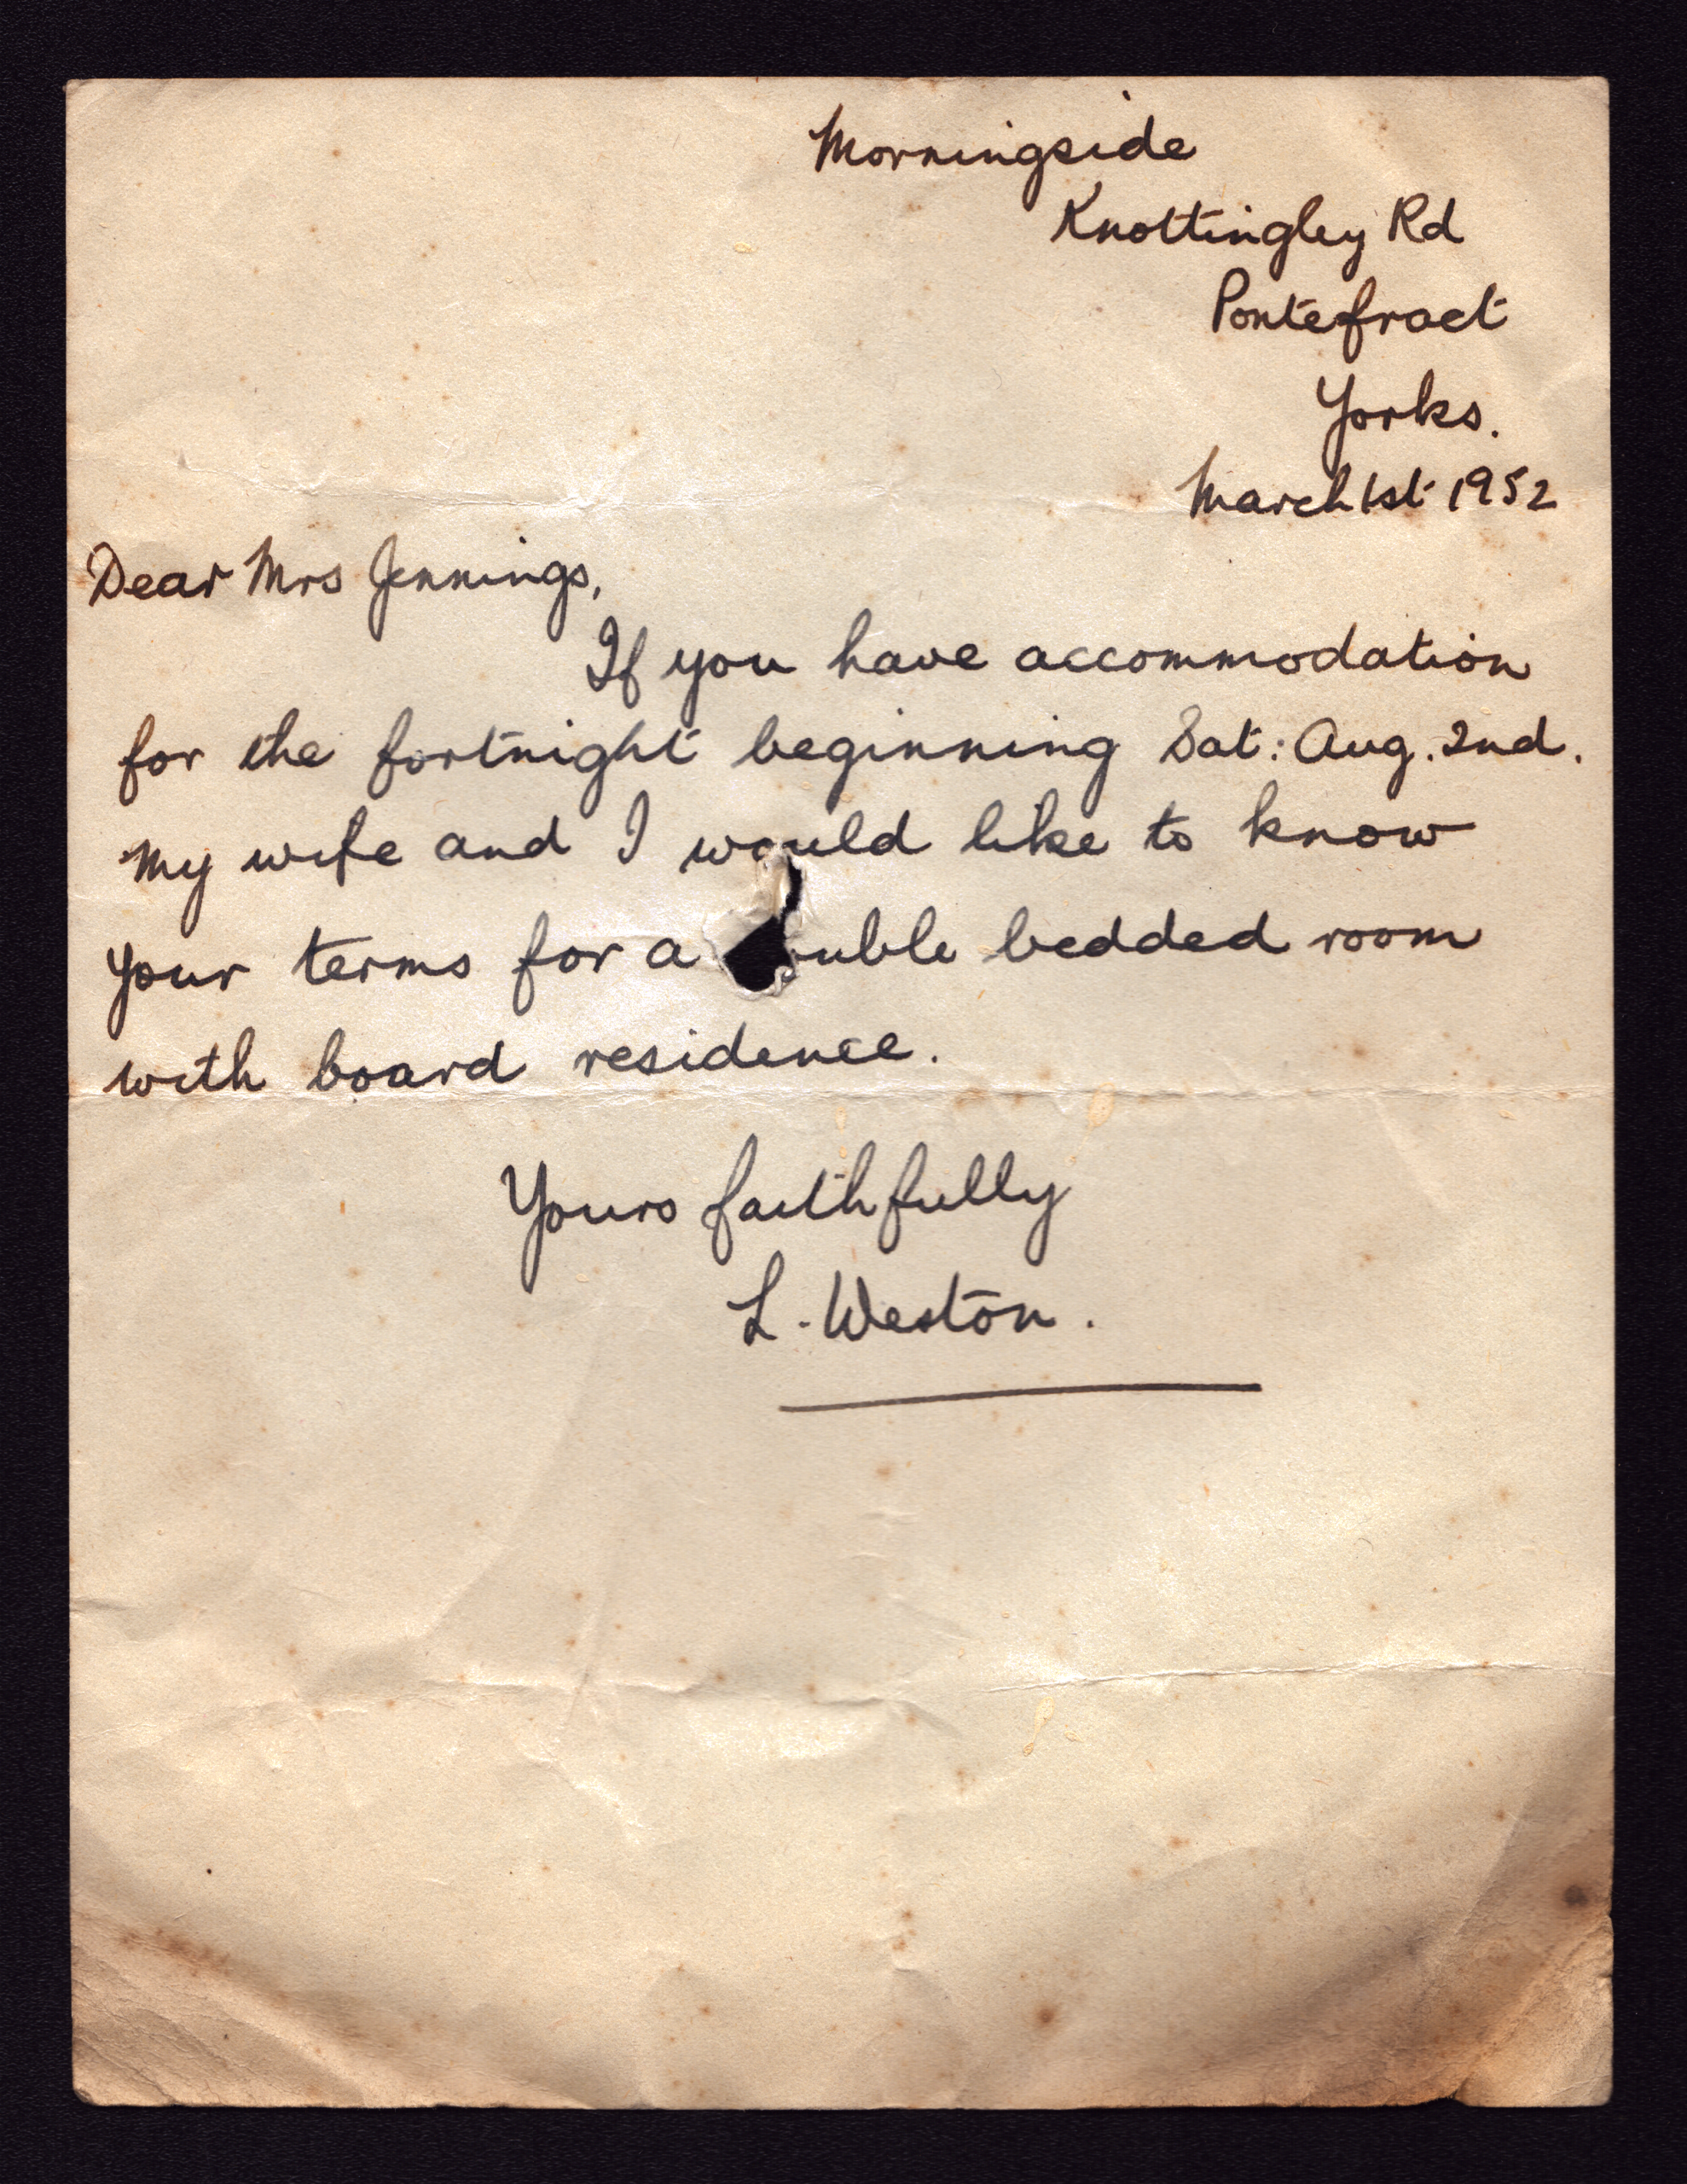 Morningside
Knottingley Rd
Pontefract
Yorks.
March 1st 1952
Dear Mrs Jennings,
If you have accommodation
for the fortnight beginning Sat: Aug. 2nd.
My wife and I would like to know
your terms for a uble bedded room
with board residence.
Yours faithfully
L. Weston.